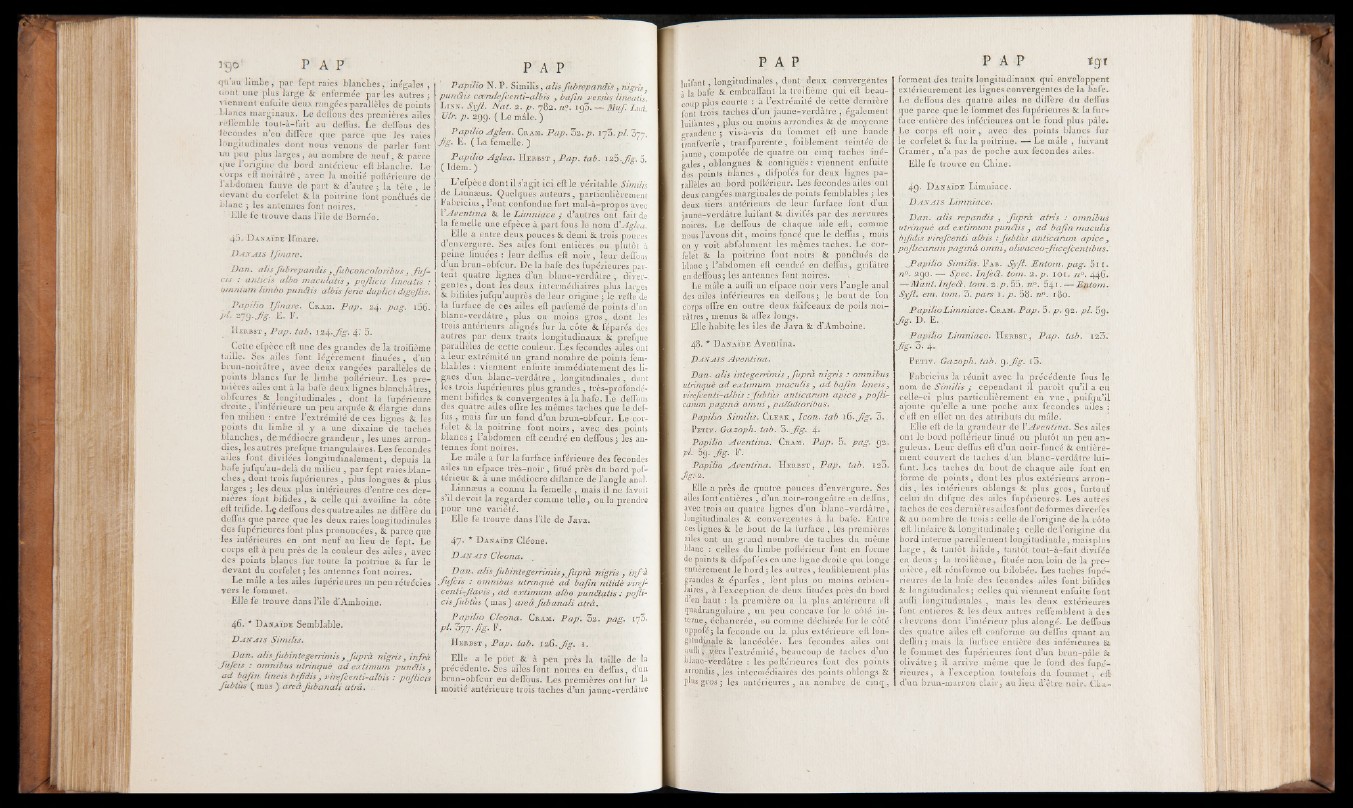 190 P A P
qu'au limbe, par sept raies blanches, inégales,
dont une plus large & enfermée par les autres ;
viennent ensuite deux rangées parallèles de points
blancs marginaux. Le dessous des premières ailes
ressemble tout-à-fait au dessus. Le dessous des
secondes n'en diffère que parce que les raies
longitudinales dont nous venons de parler sont
un peu plus larges, au nombre de neuf, & parce
que l'origine du bord intérieur est blanche. Le
corps est noirâtre, avec la moitié postérieure de
l'abdomen fauve de part & d'autre ; la tête, le
devant du corselet & la poitrine sont ponctués de
blanc ; les antennes sont noires.
Elle se trouve dans l'île de Bornéo.
45. DANAÏDE Ismare.
DANAIS Ismare.
Dan. alis subrepandis, subconcoloribus, fus-
cis : anticis albo maculatis, posticis lineatis :
omnium limbo punctis albis serie duplici digestis.
Papilio Ismare. CRAM. Pap. 24. pag. 136.
pl. 279. fig. E. F.
HERBST, Pap. tab. 124. fig. 4. 5.
Cette espèce est une des grandes de la troisième
taille. Ses ailes sont légèrement sinuées, d'un
brun-noirâtre, avec deux rangées parallèles de
points blancs sur le limbe postérieur. Les pre-
mières ailes ont à la base deux lignes blanchâtres,
obscures & longitudinales, dont la supérieure
droite, l'inférieure un peu arquée & élargie dans
son milieu : entre l'extrémité de ces lignes & les
points du limbe il y a une dixaine de taches
blanches, de médiocre grandeur, les unes arron-
dies, les autres presque triangulaires. Les secondes
ailes sont divisées longitudinalement, depuis la
base jusqu'au-delà du milieu, par sept raies blan-
ches, dont trois supérieures, plus longues & plus
larges ; les deux plus intérieures d'entre ces der-
nières sont bifides, & celle qui avoisine la côte
est trifide. Le dessous des quatre ailes ne diffère du
dessus que parce que les deux raies longitudinales
des supérieures sont plus prononcées, & parce que
les inférieures en ont neuf au lieu de sept. Le
corps est à peu près de la couleur des ailes, avec
des points blancs sur toute la poitrine & sur le
devant du corselet ; les antennes sont noires.
Le mâle a les ailes supérieures un peu rétrécies
vers le sommet.
Elle se trouve dans l'île d'Amboine.
46. * DANAÏDE Semblable.
DANAIS Similis.
Dan. alis subintegerrimis, suprà nigris, infrà
fuscis : omnibus utrinquè ad extimum punctis,
ad basin lineis bifidis, virescenti-albis : posticis
subtùs (mas) areâ subanali atrâ.
P A P
Papilio N. P. Similis, alis subrepandis, nigris,
punctis cærulescenti-albis, basin versùs lineatis.
LINN. Syst. Nat. 2. p. 782. n°. 193. — Mus. Lud.
Ulr. p. 299. (Le mâle.)
Papilio Aglea. CRAM. Pap. 32. p. 173. pl. 377.
fig. E. (La femelle.)
Papilio Aglea. HERBST, Pap. tab. 125. fig. 3.
(Idem.)
L'espèce dont il s'agit ici est le véritable Similis
de Linnæus. Quelques auteurs, particulièrement
Fabricius, l'ont confondue fort mal-à-propos avec
l'Aventina & le Limniace ; d'autres ont fait de
la femelle une espèce à part sous le nom d'Aglea.
Elle a entre deux pouces & demi & trois pouces
d'envergure. Ses ailes sont entières ou plutôt à
peine sinuées : leur dessus est noir, leur dessous
d'un brun-obscur. De la base des supérieures par-
tent quatre lignes d'un blanc-verdâtre, diver-
gentes, dont les deux intermédiaires plus larges
& bifides jusqu'auprès de leur origine ; le reste de
la surface de ces ailes est parsemé de points d'un
blanc-verdâtre, plus ou moins gros, dont les
trois antérieurs alignés sur la côte & séparés des
autres par deux traits longitudinaux & presque
parallèles de cette couleur. Les secondes ailes ont
à leur extrémité un grand nombre de points sem-
blables : viennent ensuite immédiatement des li-
gnes d'un blanc-verdâtre, longitudinales, dont
les trois supérieures plus grandes, très-profondé-
ment bifides & convergentes à la base. Le dessous
des quatre ailes offre les mêmes taches que le des-
sus, mais sur un fond d'un brun-obscur. Le cor-
selet & la poitrine sont noirs, avec des points
blancs ; l'abdomen est cendré en dessous ; les an-
tennes sont noires.
Le mâle a sur la surface inférieure des secondes
ailes un espace très-noir, situé près du bord pos-
térieur & à une médiocre distance de l'angle anal.
Linnæus a connu la femelle, mais il ne savoit
s'il devoit la regarder comme telle, ou la prendre
pour une variété.
Elle se trouve dans l'île de Java.
47. * DANAÏDE Cléone.
DANAIS Cleona.
Dan. alis subintegerrimis, suprà nigris, infrà
fuscis : omnibus utrinquè ad basin nitidè vires-
centi-flavis, ad extimum albo punctatis : posti-
cis subtùs (mas) areâ subanali atrâ.
Papilio Cleona. CRAM. Pap. 32. pag. 173.
pl. 377. fig. F.
HERBST, Pap. tab. 126. fig. 1.
Elle a le port & à peu près la taille de la
précédente. Ses ailes sont noires en dessus, d'un
brun-obscur en dessous. Les premières ont sur la
moitié antérieure trois taches d'un jaune-verdâtre
P A P
luisant, longitudinales, dont deux convergentes
à la base & embrassant la troisième qui est beau-
coup plus courte : à l'extrémité de cette dernière
sont trois taches d'un jaune-verdâtre, également
luisantes, plus ou moins arrondies & de moyenne
grandeur ; vis-à-vis du sommet est une bande
transverse, transparente, foiblement teintée de
jaune, composée de quatre ou cinq taches iné-
gales, oblongues & contiguës : viennent ensuite
des points blancs, disposés sur deux lignes pa-
rallèles au bord postérieur. Les secondes ailes ont
deux rangées marginales de points semblables ; les
deux tiers antérieurs de leur surface sont d'un
jaune-verdâtre luisant & divisés par des nervures
noires. Le dessous de chaque aile est, comme
nous l'avons dit, moins foncé que le dessus, mais
on y voit absolument les mêmes taches. Le cor-
selet & la poitrine sont noirs & ponctués de
blanc ; l'abdomen est cendré en dessus, grisâtre
en dessous ; les antennes sont noires.
Le mâle a aussi un espace noir vers l'angle anal
des ailes inférieures en dessous ; le bout de son
corps offre en outre deux faisceaux de poils noi-
râtres, menus & assez longs.
Elle habite les îles de Java & d'Amboine.
48. * DANAÏDE Aventina.
DANAIS Aventina.
Dan. alis integerrimis, suprà nigris : omnibus
utrinquè ad extimum maculis, ad basin lineis,
virescenti-albis : subtùs anticarum apice, posti-
carum paginâ omni, pallidioribus.
Papilio Similis. CLERK, Icon. tab 16. fig. 3.
PETIV. Gazoph. tab. 3. fig. 4.
Papilio Aventina. CRAM. Pap. 5. pag. 92.
pl. 59. fig. F.
Papilio Aventina. HERBST, Pap. tab. 123.
fig. 2.
Elle a près de quatre pouces d'envergure. Ses
ailes sont entières, d'un noir-rougeâtre en dessus,
avec trois ou quatre lignes d'un blanc-verdâtre,
longitudinales & convergentes à la base. Entre
ces lignes & le bout de la surface, les premières
ailes ont un grand nombre de taches du même
blanc : celles du limbe postérieur sont en forme
de points & disposées en une ligne droite qui longe
entièrement le bord ; les autres, sensiblement plus
grandes & éparses, sont plus ou moins orbicu-
laires, à l'exception de deux situées près du bord
d'en haut : la première ou la plus antérieure est
quadrangulaire, un peu concave sur le côté in-
terne, échancrée, ou comme déchirée sur le côté
opposé ; la seconde ou la plus extérieure est lon-
gitudinale & lancéolée. Les secondes ailes ont
aussi, vers l'extrémité, beaucoup de taches d'un
blanc-verdâtre : les postérieures sont des points
arrondis, les intermédiaires des points oblongs &
plus gros ; les antérieures, au nombre de cinq,
P A P 191
forment des traits longitudinaux qui enveloppent
extérieurement les lignes convergentes de la base.
Le dessous des quatre ailes ne diffère du dessus
que parce que le sommet des supérieures & la sur-
face entière des inférieures ont le fond plus pâle.
Le corps est noir, avec des points blancs sur
le corselet & sur la poitrine. — Le mâle, suivant
Cramer, n'a pas de poche aux secondes ailes.
Elle se trouve en Chine.
49. DANAÏDE Limniace.
DANAIS Limniace.
Dan. alis repandis, suprà atris : omnibus
utrinquè ad extimum punctis, ad basin maculis
bifidis virescenti albis : subtùs anticarum apice,
posticarum paginâ omni, olivaceo-fuscescentibus.
Papilio Similis. FAB. Syst. Entom. pag. 511.
n°. 290. — Spec. Insect. tom. 2. p. 101. n°. 446.
— Mant. Insect. tom. 2. p. 55. n°. 541. — Entom.
Syst. em. tom. 3. pars 1. p. 58. n°. 180.
Papilio Limniace. CRAM. Pap. 5. p. 92. pl. 59.
fig. D. E.
Papilio Limniace. HERBST, Pap. tab. 123.
fig. 3. 4.
PETIV. Gazoph. tab. 9. fig. 13.
Fabricius la réunit avec la précédente sous le
nom de Similis ; cependant il paroît qu'il a eu
celle-ci plus particulièrement en vue, puisqu'il
ajoute qu'elle a une poche aux secondes ailes ;
c'est en effet un des attributs du mâle.
Elle est de la grandeur de l'Aventina. Ses ailes
ont le bord postérieur sinué ou plutôt un peu an-
guleux. Leur dessus est d'un noir-foncé & entière-
ment couvert de taches d'un blanc-verdâtre lui-
sant. Les taches du bout de chaque aile sont en
forme de points, dont les plus extérieurs arron-
dis, les intérieurs oblongs & plus gros, surtout
celui du disque des ailes supérieures. Les autres
taches de ces dernières ailes sont de formes diverses
& au nombre de trois : celle de l'origine de la côte
est linéaire & longitudinale ; celle de l'origine du
bord interne pareillement longitudinale, mais plus
large, & tantôt bifide, tantôt tout-à-fait divisée
en deux ; la troisième, située non loin de la pre-
mière, est réniforme ou bilobée. Les taches supé-
rieures de la base des secondes ailes sont bifides
& longitudinales ; celles qui viennent ensuite sont
aussi longitudinales, mais les deux extérieures
sont entières & les deux autres ressemblent à des
chevrons dont l'intérieur plus alongé. Le dessous
des quatre ailes est conforme au dessus quant au
dessin ; mais la surface entière des inférieures &
le sommet des supérieures sont d'un brun-pâle &
olivâtre ; il arrive même que le fond des supé-
rieures, à l'exception toutefois du sommet, est
d'un brun-marron clair, au lieu d'être noir. Cha-